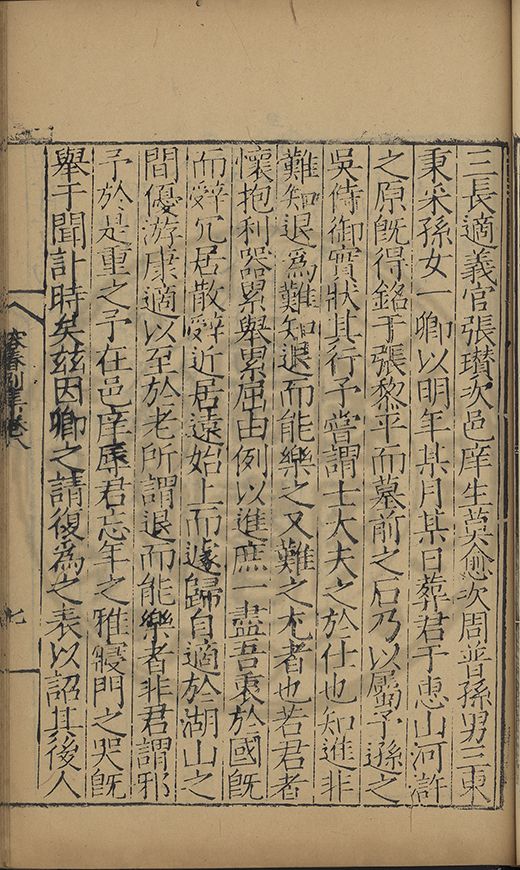 三長適義官張瓚次邑庠生莫愈次周普孫男三東
秉采孫女一卿以明年某月某日葬君于惠山河滸
之原旣得銘于張黎平而墓前之石乃以屬予遜之
吳侍御實狀其行予嘗謂士大夫之於仕也知進非
難知退爲難知退而能樂之又難之尤者也若君者
懷抱利器累舉累屈由例以進庶一盡吾衷於國旣
而辭冗居散辭近居遠始上而遽歸自適於湖山之
間優游康適以至於老所謂退而能樂者非君謂邪
予於是重之予在邑庠辱君忘年之雅寢門之哭旣
舉于聞訃時矣茲因卿之請復為之表以詔其後人
容春別集卷八
七